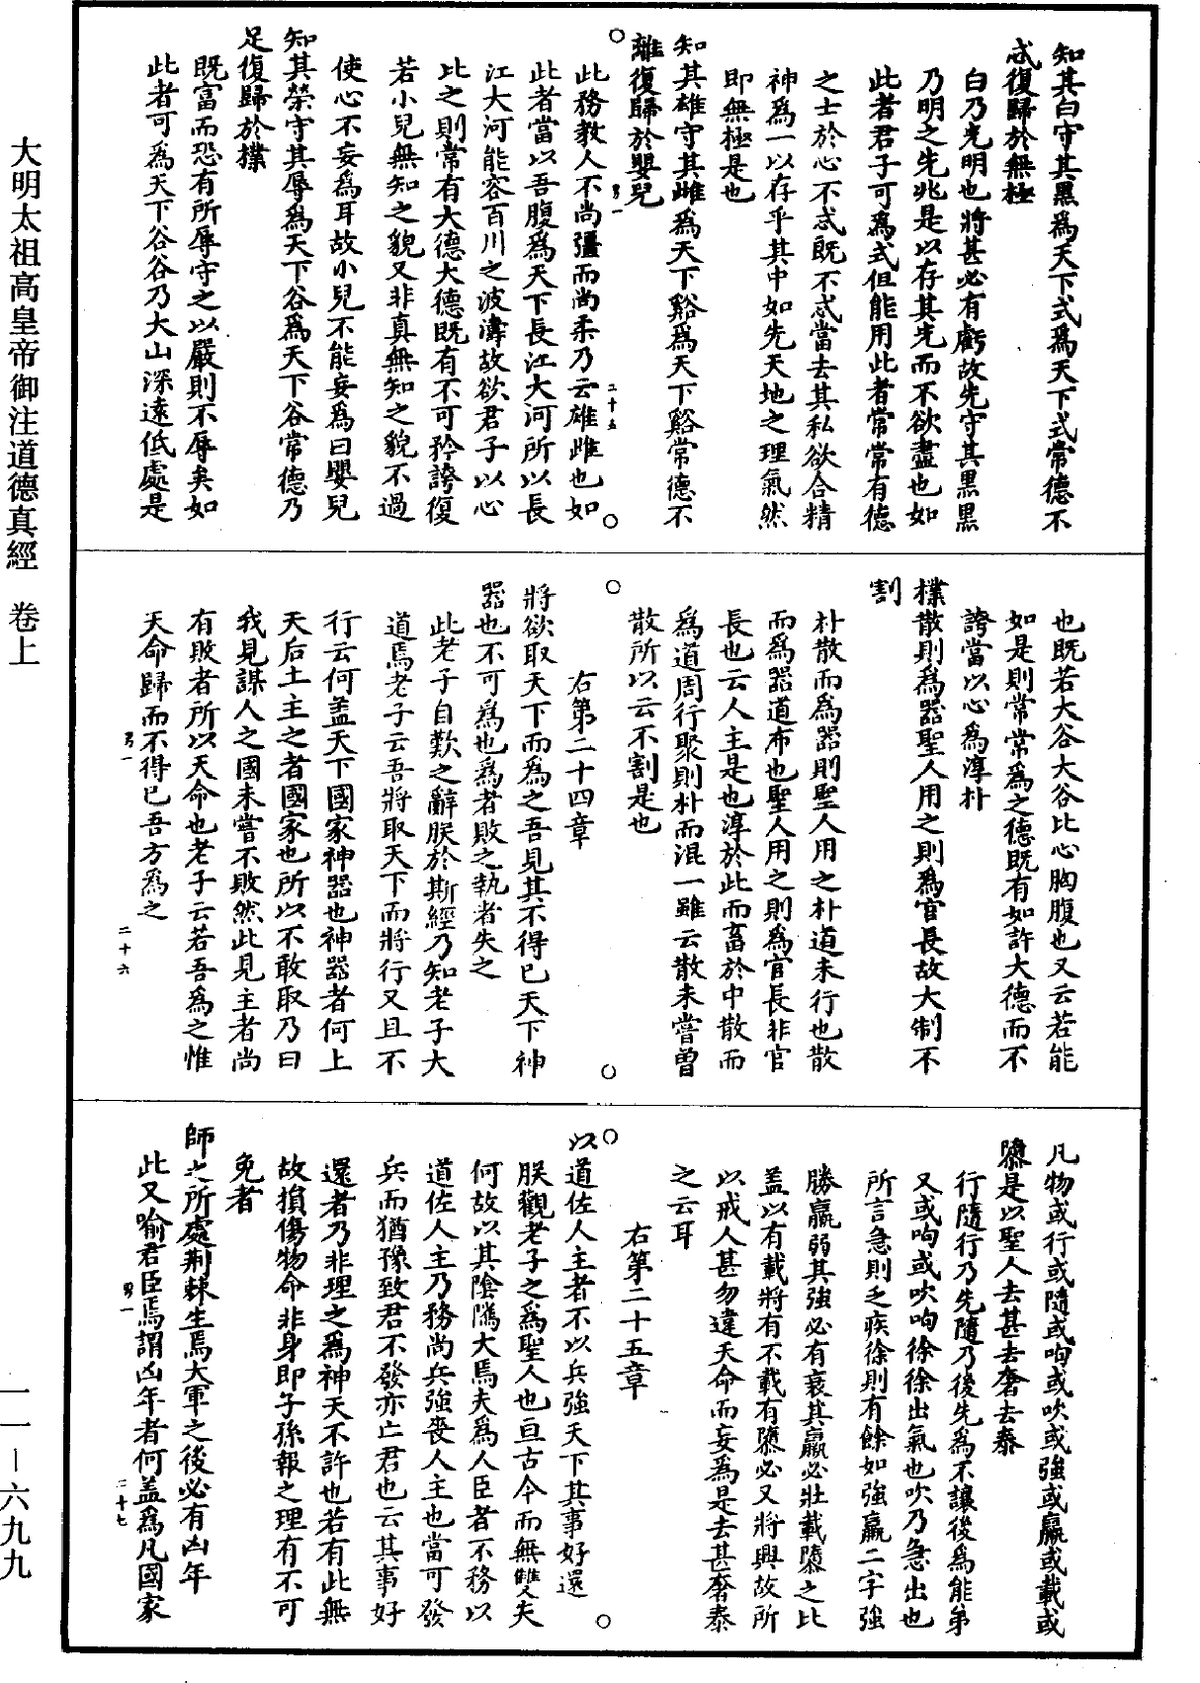 知其白守其黑爲天下式爲天下式常德不
忒復歸於無極
白乃光明也將甚必有虧故先守其黑黑
乃明之先兆是以存其光而不欲盡也如
此者君子可爲式但能用此者常常有德
之士於心不忒既不忒當去其私欲合精
神爲一以存乎其中如先天地之理氣然
即無極是也
知其雄守其雌爲天下谿爲天下谿常德不
離復歸於嬰兒
此務教人不尚彊而尚柔乃云雄雌也如
此者當以吾腹爲天下長江大河所以長
江大河能容百川之波濤故欲君子以心
比之則常有大德大德既有不可矜誇復
若小兒無知之貌又非真無知之貌不過
使心不妄爲耳故小兒不能妄爲曰嬰兒
知其榮守其辱爲天下谷爲天下谷常德乃
足復歸於樸
既富而恐有所辱守之以嚴則不辱矣如
此者可爲天下谷谷乃大山深遠低處是
二十五
也既若大谷大谷比心胸腹也又云若能
如是則常常爲之德既有如許大德而不
誇當以心爲淳朴
樸散則爲器聖人用之則爲官長故大制不
割
朴散而爲器則聖人用之朴道未行也散
而爲器道布也聖人用之則爲官長非官
長也云人主是也淳於此而畜於中散而
爲道周行聚則朴而混一雖云散未嘗曾
散所以云不割是也
右第二十四章
將欲取天下而爲之吾見其不得已天下神
器也不可爲也爲者敗之執者失之
此老子自歎之辭朕於斯經乃知老子大
道焉老子云吾將取天下而將行又且不
行云何盖天下國家神器也神器者何上
天后土主之者國家也所以不敢取乃曰
我見謀人之國未嘗不敗然此見主者尚
有敗者所以天命也老子云若吾爲之惟
天命歸而不得已吾方爲之
二十六
凡物或行或隨或呴或吹或強或羸或載或
隳是以聖人去甚去奢去泰
行隨行乃先隨乃後先爲不讓後爲能弟
又或呴或吹呴徐徐出氣也吹乃急出也
所言急則乏疾徐則有餘如強羸二字強
勝羸弱其強必有衰其羸必壯載隳之比
盖以有載將有不載有隳必又將興故所
以戒人甚勿違天命而妄爲是去甚奢泰
之云耳
右第二十五章
以道佐人主者不以兵強天下其事好還
朕觀老子之爲聖人也亘古今而無雙夫
何故以其陰隲大焉夫爲人臣者不務以
道佐人主乃務尚兵強喪人主也當可發
兵而猶豫致君不發亦亡君也云其事好
還者乃非理之爲神天不許也若有此無
故損傷物命非身即子孫報之理有不可
免者
師之所處荆棘生焉大軍之後必有凶年
此又喻君臣焉謂凶年者何盖爲凡國家
二十七
大明太祖高皇帝御注道德真經　卷上
一一－六九九